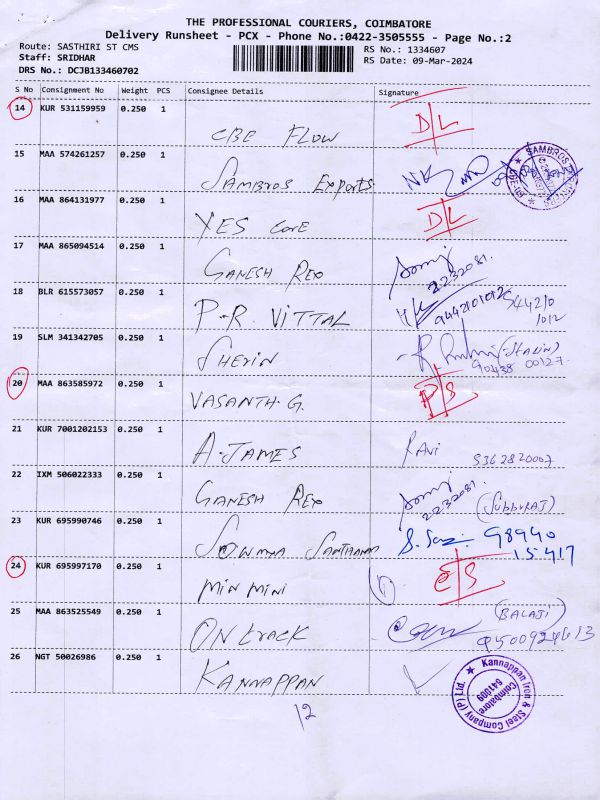 THE PROFESSIONAL COURIERS, COIMBATORE
Delivery Runsheet - PCX - Phone No.:0422-3505555 - Page No.:2
Route: SASTHIRI ST CMS RS No.: 1334607
Staff: SRIDHAR RS Date: 09-Mar-2024
DRS No.: DCJB133460702
S No Consignment No Weight PCS Consignee Details Signature
14 KUR 531159959 0.250 1 CBE FLOW D/L
15 MAA 574261257 0.250 1 SAMBROS Exports
16 MAA 864131977 0.250 1 YES CorE D/L
17 MAA 865094514 0.250 1 GANESH REX 2232081.
18 BLR 615573057 0.250 1 P-R. VITTAL 9442101012 944210 1012
19 SLM 341342705 0.250 1 SHERIN (STALIN) 90438 00127.
20 MAA 863585972 0.250 1 VASANTH.G. P/S
21 KUR 7001202153 0.250 1 A-JAMES RAVI 9362820007
22 IXM 506022333 0.250 1 GANESH REX 2232081. (SUBBURAJ)
23 KUR 695990746 0.250 1 SOWMYA SANTHANAM 98940 15417
24 KUR 695997170 0.250 1 MIN MINI C/S
25 MAA 863525549 0.250 1 ONtrACK (BALAJI) 9500924613
26 NGT 50026986 0.250 1 KANNAPPAN
Kannappan Iron & Steel Company (P) Ltd. Coimbatore 641009
12